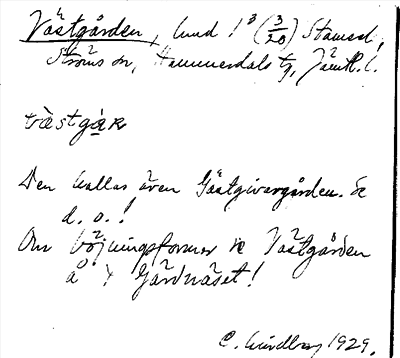 Västgården, lund 1³ (3/20) Stamsel,
Ströms sn, Hammerdals tg, Jämtl. l.
västgåɽ
Den kallas även Gästgivergården. Se
d. o.!
Om böjningsformer se Västgården
å Gärdnäset!
C. Lindberg 1929.